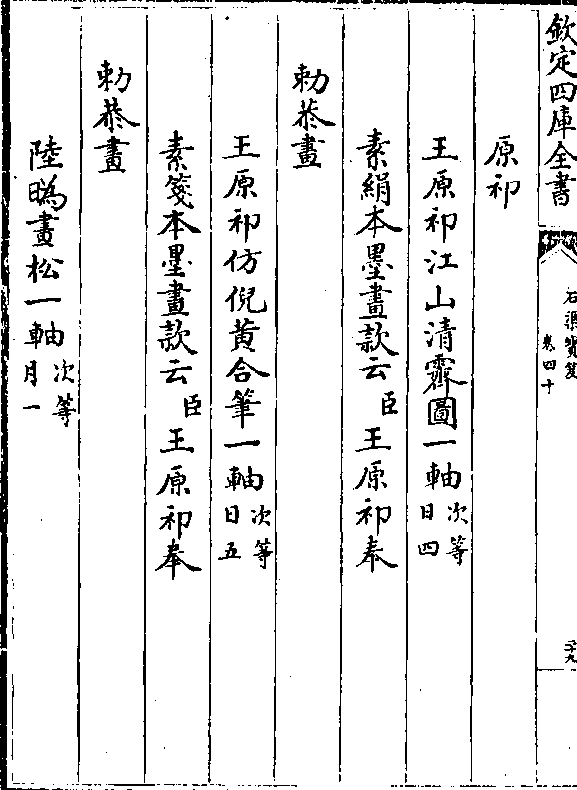 欽定四庫全書
石渠寶笈
卷四十
二十九
原祁
王原祁江山清霽圖一軸次等日四
素絹本墨畫款云臣王原祁奉
勅恭畫
王原祁仿倪黄合筆一軸次等日五
素箋本墨畫款云臣王原祁奉
勅恭畫
陸𤾉畫松一軸次等月一